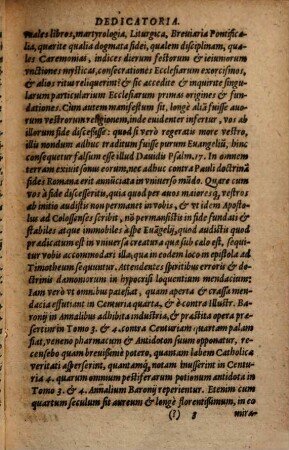 DEDICATORIA.
uales libros, martyrologia, Liturgica, Breuiaria Pontifica-
lia, quærite qualia dogmata fidei, qualem disciplinam, qua-
les Caremonias, indices dierum festorum & ieiuniorum
vnctiones mysticas, consecrationes Ecclesiarum exorcismos,
& alios ritus reliquerint? & sic accedite & inquirite singu-
larum particularium Ecclesiarum primas origines & fun-
dationes. Cum autem manifestum sit, longè aliā fuisse auo-
rum vestrorum religionem, inde euidenter infertur, vos ab
illorum fide discessisse: quod si verò regeratis more vestro,
illis nondum adhuc traditum fuisse purum Euangeliū, hinc
consequetur falsum esse illud Dauidis Psalm. 17. In omnem
terram exiuit sonus eorum, nec adhuc contra Pauli doctrinā
fides Romana erit annūciata in vniuerso mūdo. Quare cum
vos à fide discesseritis, quia quod per auos maioresq́; vestros
ab initio audistis non permanet in vobis, & vt idem Aposto-
lus ad Colossenses scribit, nō permansistis in fide fundati &
stabiles atque immobiles à spe Euāgelij, quod audistis quod
prædicatum est in vniuersa creatura quæ sub cælo est, sequi-
tur vobis accommodari illa, quæ in eodem loco in epistola ad
Timotheum sequuntur. Attendentes spiritibus erroris & do-
ctrinis dæmoniorum in hypocrisi loquentium mendacium;
Iam verò vt omnibus patefiat, quam aperta & crassa men-
dacia effutiant in Centuria quarta, & è contra Illustr. Ba-
ronij in Annalibus adhibita industria, & præstita opera præ-
sertim in Tomo 3. & 4. contra Centuriam quartam palam
fiat, veneno pharmacum & Antidoton suum opponatur, re-
censebo quam breuissimè potero, quantam labem Catholicæ
veritati asperserint, quantamq́; notam inusserint in Centu-
ria 4. quarum omnium pestiferarum potionum antidota in
Tomo 3. & 4. Annalium Baronij reperientur. Etenim cum
quartum seculum sit aureum & longè florentissimum, in eo
(?) 3 mira-